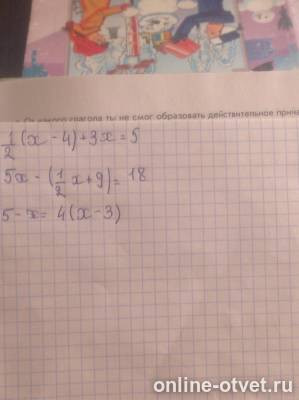 глагола ты не смог образовать действительное
1/2 (x - 4) + 3x = 5
5x - (1/2 x + 9) = 18
5 - x = 4(x - 3)
online-otvet.ru